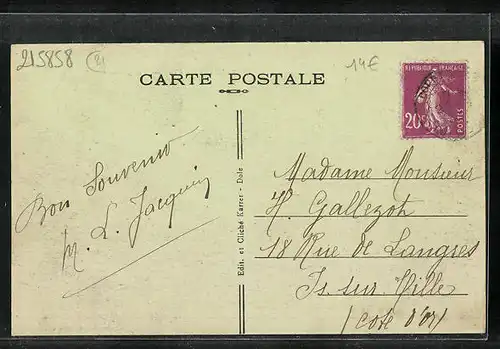 215858
21
14€
CARTE POSTALE
REPUBLIQUE FRANÇAISE
20c
POSTES
Bon Souvenir
M. L. Jacquin
Edit. et Cliché Karrer - Dole
Madame Monsieur
H. Gallezot
18 Rue de Langres
Is sur Tille
(cote d'or)